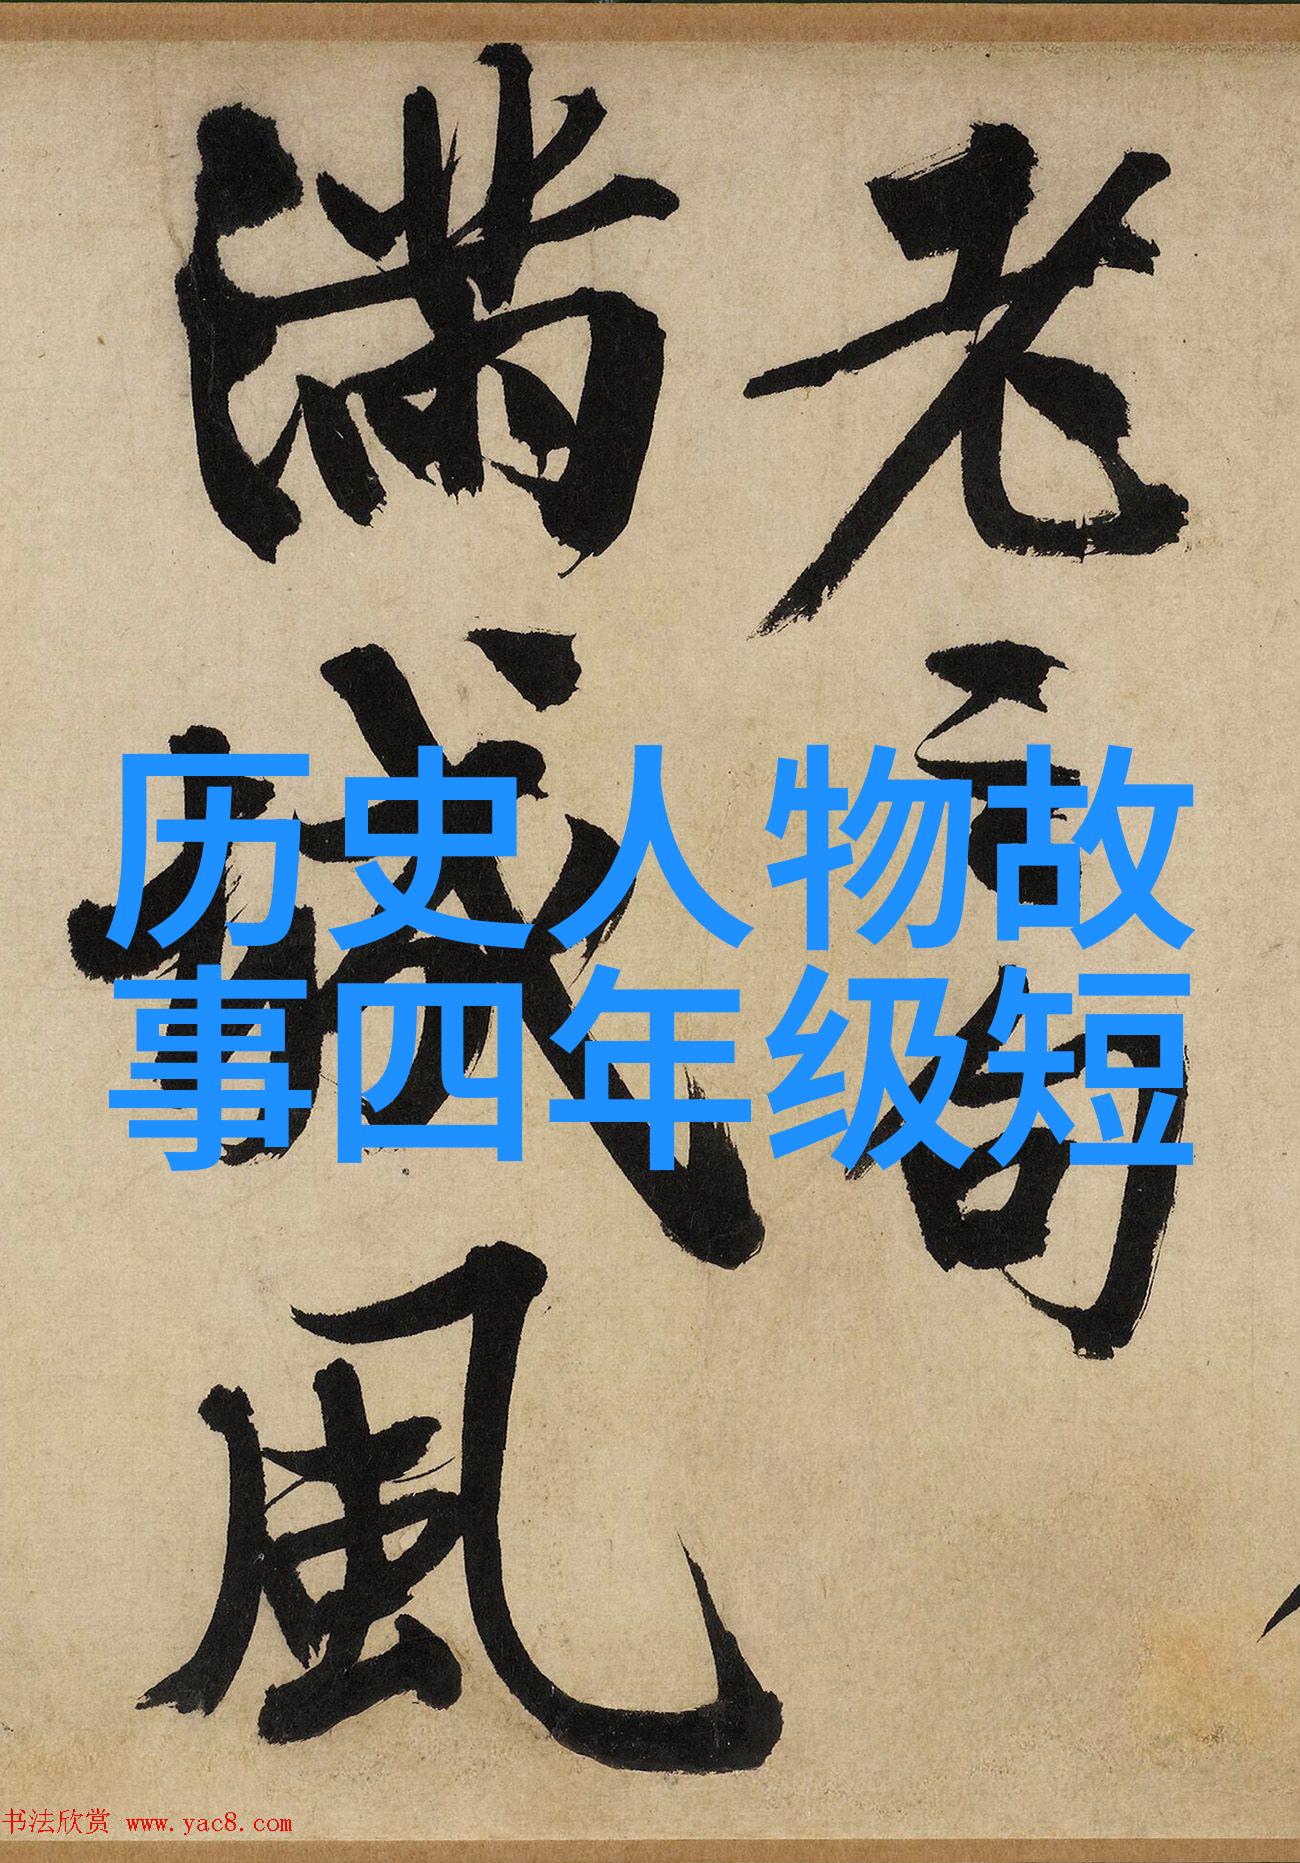 老句
滿城風
历史人物故
事四年级短
书法欣赏 www.yac8.com